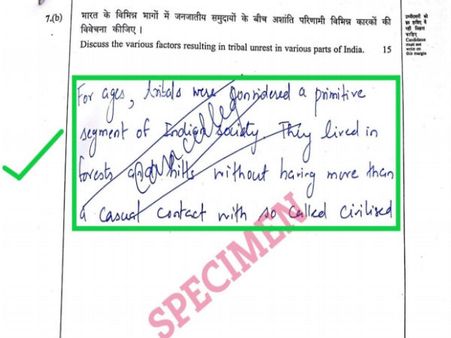 7.(b) भारत के विभिन्न भागों में जनजातीय समुदायों के बीच अशांति परिणामी विभिन्न कारकों की
विवेचना कीजिए ।
Discuss the various factors resulting in tribal unrest in various parts of India. 15
उम्मीदवारों को
इस हाशिये में
नहीं लिखना
चाहिए
Candidates
must not
write on
this margin
For ages, tribals were considered a primitive
segment of Indian Society. They lived in
forests and hills without having more than
a casual contact with so called civilised
Cancelled
SPECIMEN